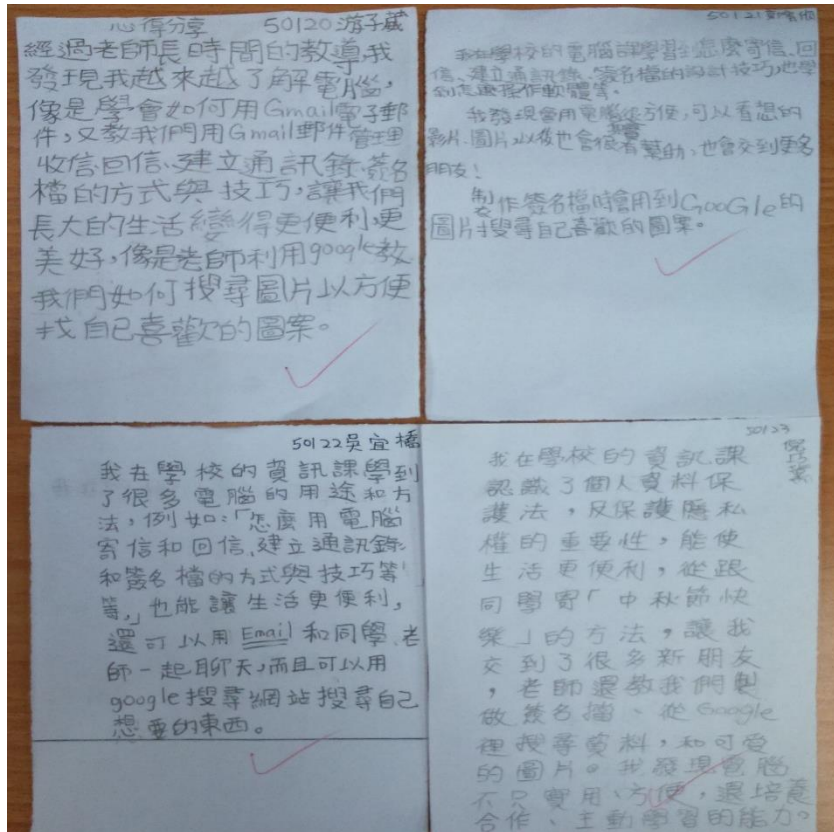 心得分享 50120 游子葳
經過老師長時間的教導,我
發現我越來越了解電腦,
像是學會如何用Gmail電子郵
件,又教我們用Gmail郵件管理
收信.回信、建立通訊錄.簽名
檔的方式與技巧,讓我們
長大的生活變得更便利,更
美好,像是老師利用google教
我們如何搜尋圖片以方便
找自己喜歡的圖案。
50121
我在學校的電腦課學習到怎麼寄信、回
信、建立通訊錄、簽名檔的設計技巧,也學
到怎麼操作軟體等。
我發現會用電腦很方便,可以看想的
影片.圖片,以後也會很有幫助,也會交到更多
朋友!
製作簽名檔時會用到GooGle的
圖片搜尋自己喜歡的圖案。
50122吳宜橋
我在學校的資訊課學到
了很多電腦的用途和方
法,例如:「怎麼用電腦
寄信和回信、建立通訊錄
和簽名檔的方式與技巧等
等,」也能讓生活更便利,
還可以用Email和同學、老
師一起聊天,而且可以用
google搜尋網站搜尋自己
想要的東西。
50123
我在學校的資訊課
認識了個人資料保
護法,及保護隱私
權的重要性,能使
生活更便利,從跟
同學寄「中秋節快
樂」的方法,讓我
交到了很多新朋友
,老師還教我們製
做簽名擋、從Google
裡搜尋資料,和可愛
的圖片。我發現電腦
不只實用、方便,還培養
合作、主動學習的能力。